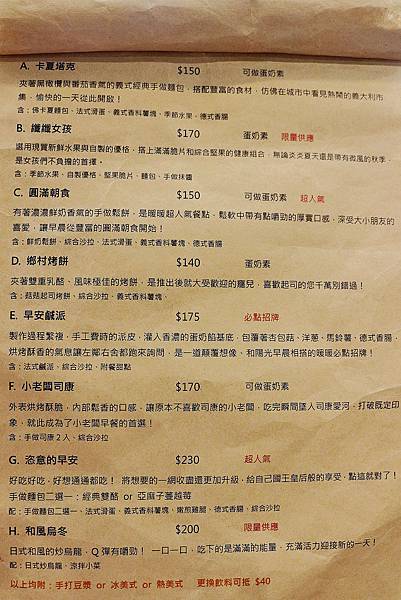 A. 卡夏塔克 $150 可做蛋奶素
夾著黑橄欖與番茄香氣的義式經典手做麵包，搭配豐富的食材，仿佛在城市中看見熱鬧的義大利市
集，愉快的一天從此開啟！
含：佛卡夏麵包、法式滑蛋、義式香料薯塊、季節水果、德式香腸
B. 纖纖女孩 $170 蛋奶素 限量供應
選用現買新鮮水果與自製的優格，搭上滿滿脆片和綜合堅果的健康組合，無論炎炎夏天還是帶有微風的秋季，
是女孩們不負擔的首選。
含：季節水果、自製優格、堅果脆片、麵包、手做抹醬
C. 圓滿朝食 $150 可做蛋奶素 超人氣
有著濃濃鮮奶香氣的手做鬆餅，是暖暖超人氣餐點，鬆軟中帶有點嚼勁的厚實口感，深受大小朋友的
喜愛，讓早晨從豐富的圓滿朝食開始！
含：鮮奶鬆餅、綜合沙拉、法式滑蛋、義式香料薯塊、德式香腸
D. 鄉村烤餅 $140 蛋奶素
夾著雙重乳酪、風味極佳的烤餅，是推出後就大受歡迎的寵兒，喜歡起司的您千萬別錯過！
含：菇菇起司烤餅、綜合沙拉、義式香料薯塊、
E. 早安鹹派 $175 必點招牌
製作過程繁複，手工費時的派皮，灌入香濃的蛋奶餡基底，包覆著杏包菇、洋蔥、馬鈴薯、德式香腸，
烘烤酥香的氣息讓左鄰右舍都跑來詢問，是一道顛覆想像、和陽光早晨相搭的暖暖必點招牌！
含：法式鹹派、綜合沙拉、附餐甜點
F. 小老闆司康 $170 可做蛋奶素
外表烘烤酥脆，內部鬆香的口感，讓原本不喜歡司康的小老闆，吃完瞬間墜入司康愛河，打破既定印
象，就此成為了小老闆早餐的首選！
含：手做司康2入、綜合沙拉
G. 恣意的早安 $230 超人氣
好吃好吃，好想通通都吃！ 將想要的一網收盡還更加升級，給自己國王皇后般的享受，點這就對了！
手做麵包二選一：經典雙酪 or 亞麻子蔓越莓
配：手做麵包二選一、法式滑蛋、義式香料薯塊、嫩煎雞腿、德式香腸、綜合沙拉
H. 和風烏冬 $200 限量供應
日式和風的炒烏龍，Q 彈有嚼勁！ 一口一口，吃下的是滿滿的能量，充滿活力迎接新的一天！
配：日式炒烏龍、涼拌小菜
以上均附：手打豆漿 or 冰美式 or 熱美式 更換飲料可抵 $40